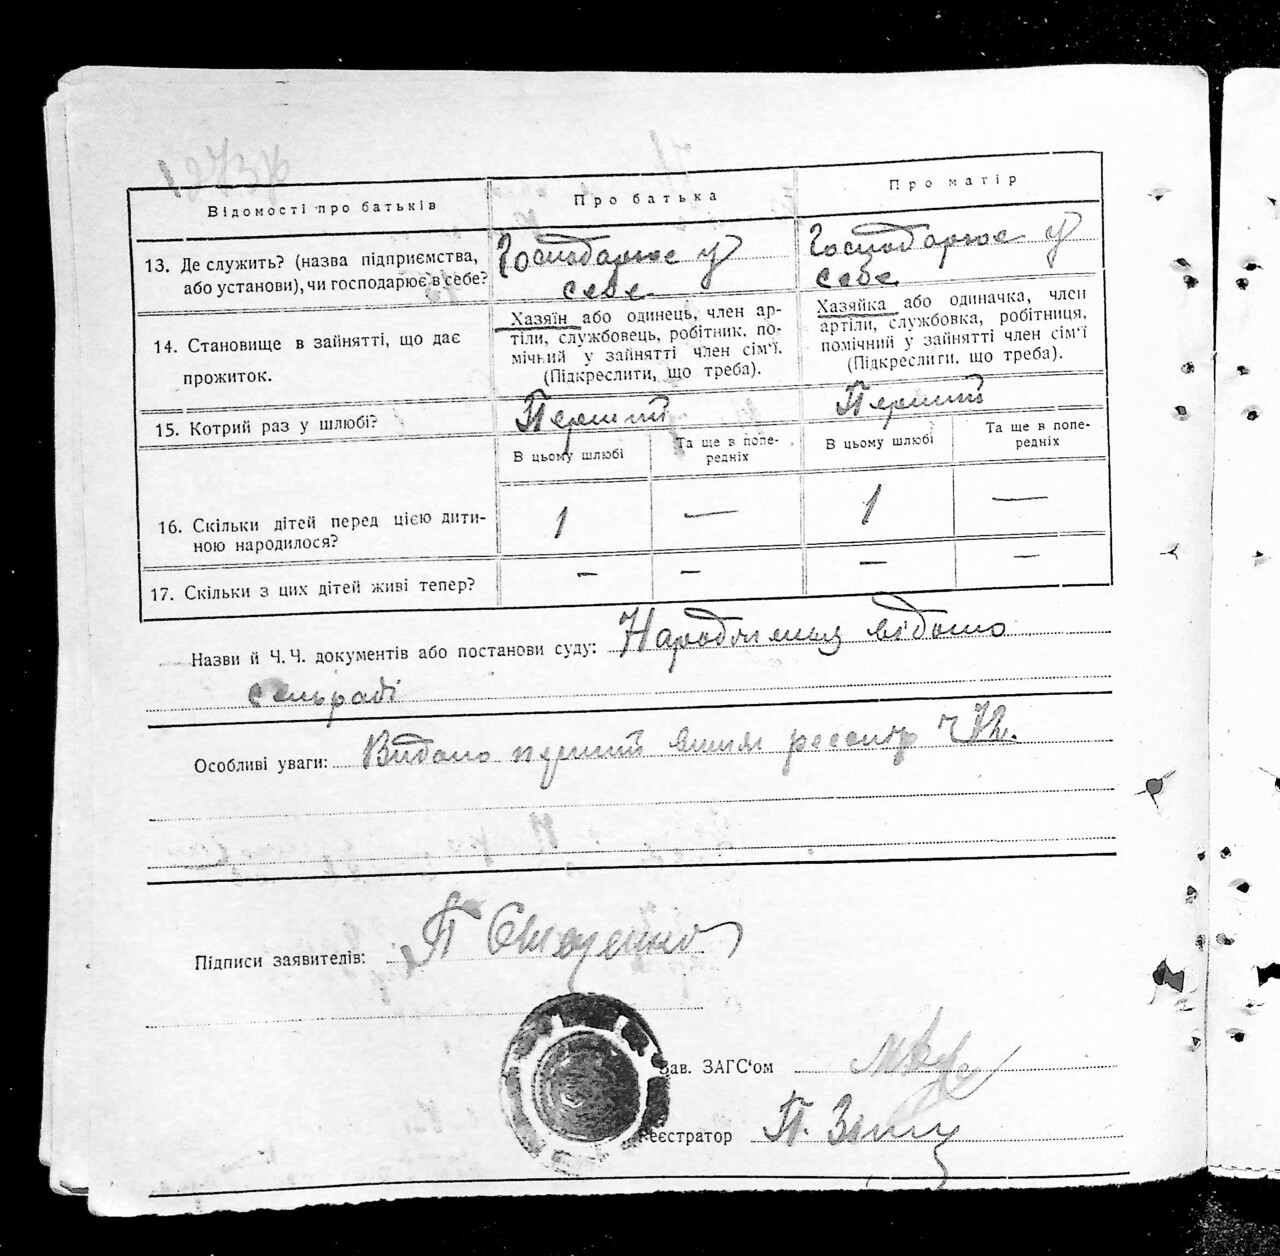 Відомості про батьків
Про батька
Про матір
13. Де служить? (назва підприємства,
або установи), чи господарює в себе?
Господарює у
себе
Господарює у
себе
14. Становище в зайнятті, що дає
прожиток.
Хазяїн або одинець, член ар-
тіли, службовець, робітник, по-
мічний у зайнятті член сім'ї.
(Підкреслити, що треба).
Хазяйка або одиначка, член
артіли, службовка, робітниця,
помічний у зайнятті член сім'ї
(Підкреслити, що треба).
15. Котрий раз у шлюбі?
Перший
Перший
В цьому шлюбі
Та ще в попе-
редніх
В цьому шлюбі
Та ще в попе-
редніх
16. Скільки дітей перед цією дити-
ною народилося?
1
—
1
—
17. Скільки з цих дітей живі тепер?
—
—
—
—
Назви й Ч. Ч. документів або постанови суду: Народження відомо
сельраді
Особливі уваги: Видано перший
Підписи заявителів: П
Зав. ЗАГС'ом
Реєстратор П.